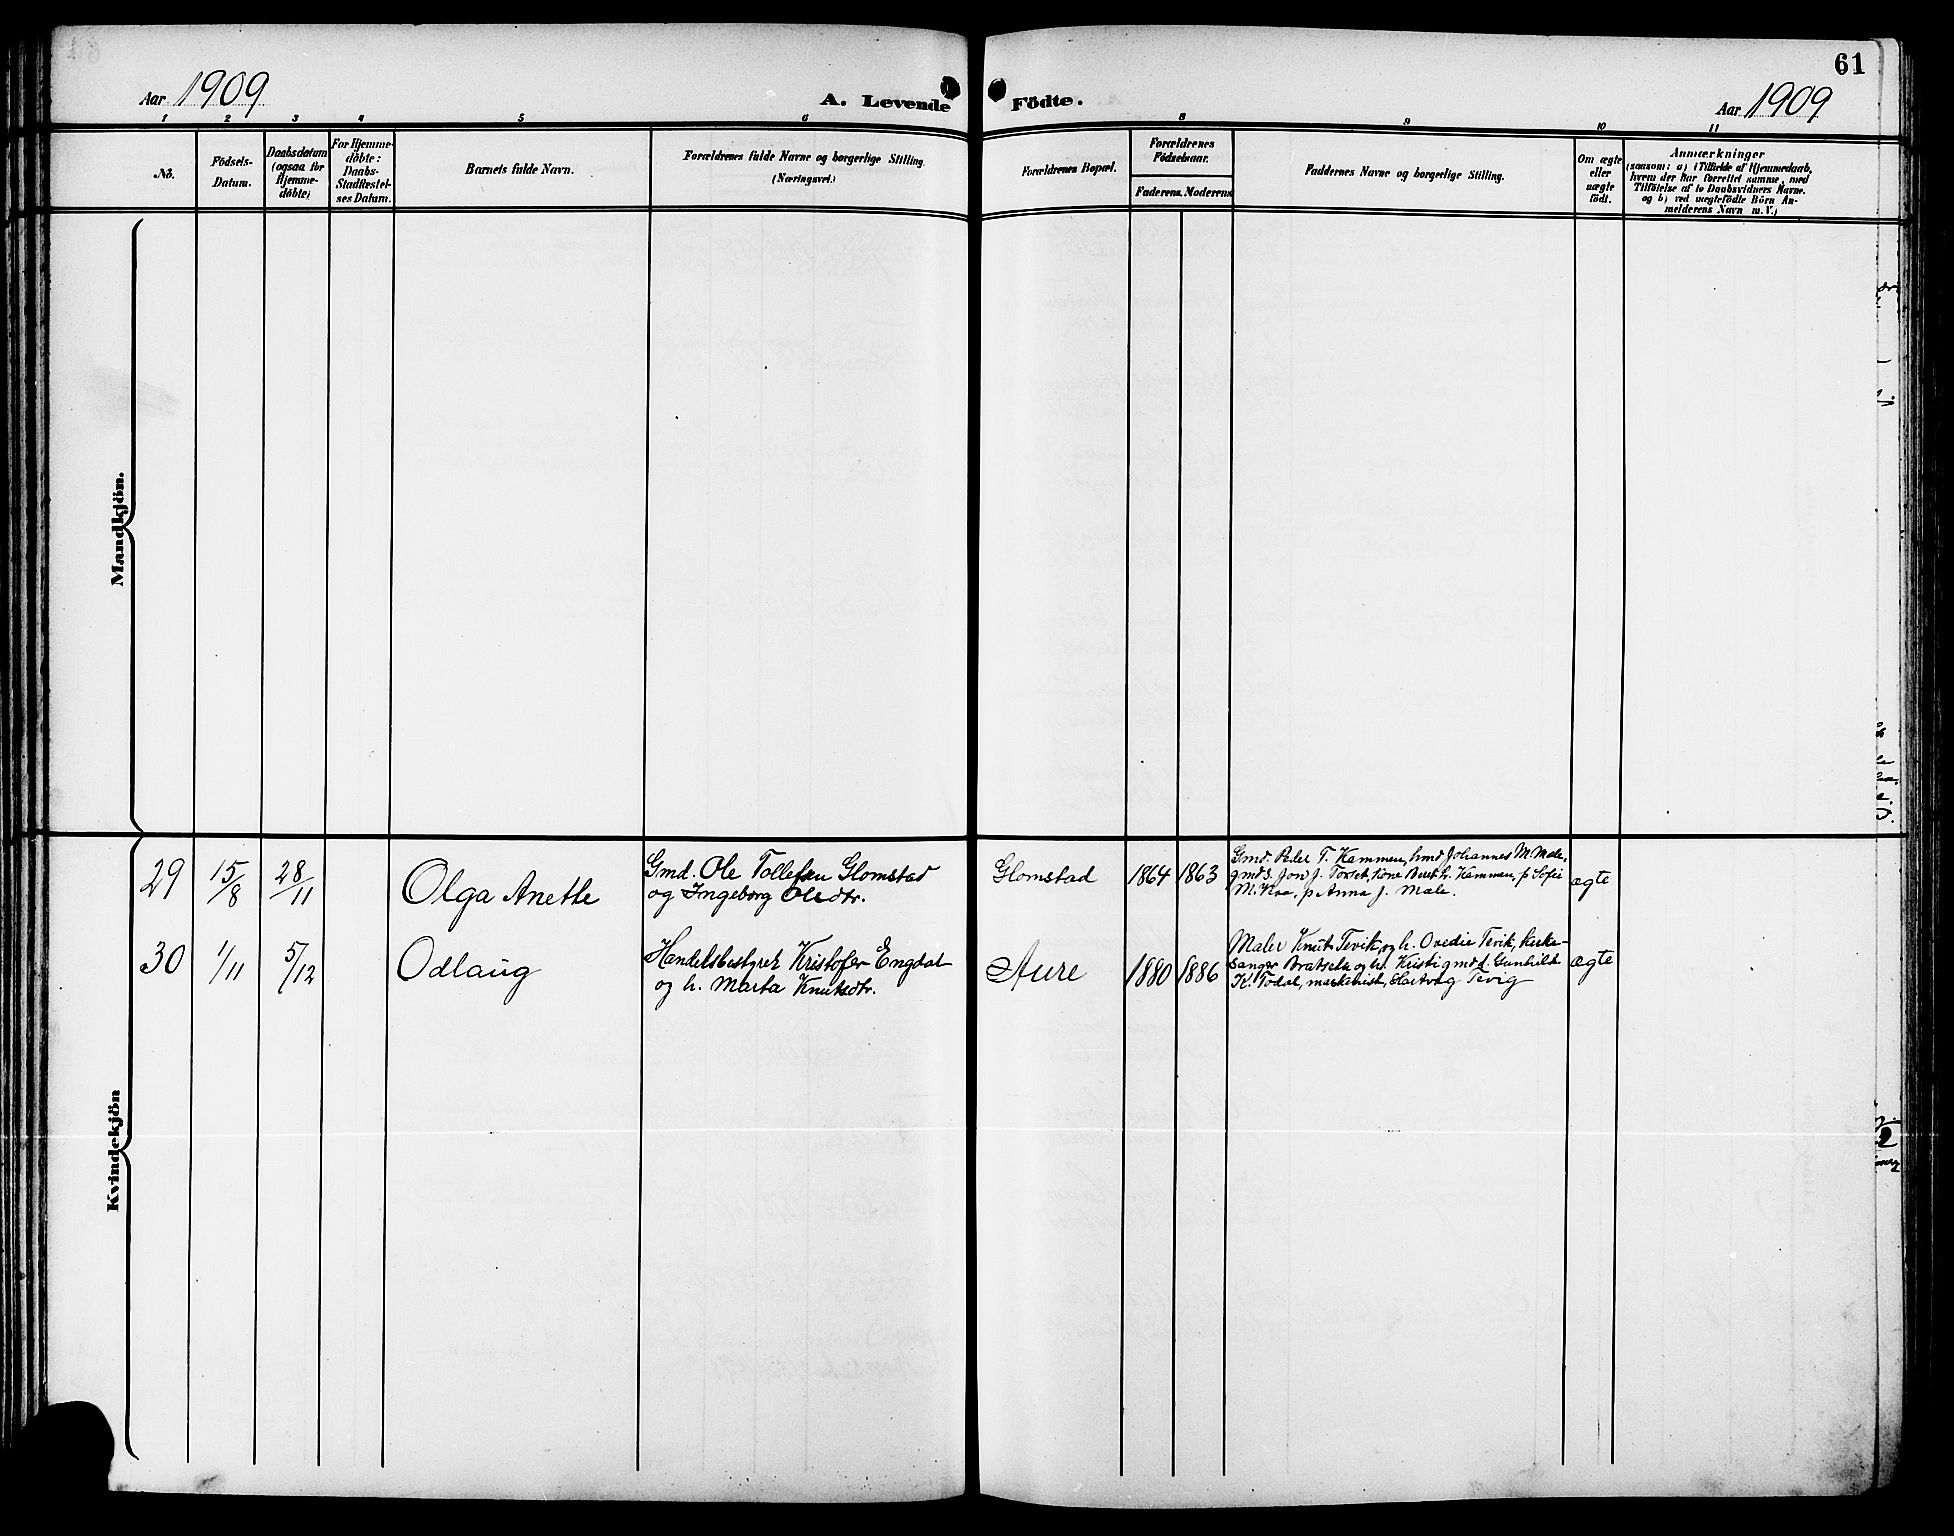 61
Aar 1909
A. Levende Födte.
Aar 1909
1 2 3 4 5 6 8 9 10 11
No.
Födsels-
Datum.
Daabsdatum
(ogsaa for
Hjemme-
döbte)
For Hjemme-
döbte:
Daabs-
Stadfæstel-
ses Datum.
Barnets fulde Navn.
Forældrenes fulde Navne og borgerlige Stilling.
(Næringsvei.)
Forældrenes Bopæl.
Forældrenes
Födselsaar.
Faderens. Moderens
Faddernes Navne og borgerlige Stilling.
Om ægte
eller
uægte
födt.
Anmærkninger
(saasom: a) i Tilfælde af Hjemmedaab,
hvem der har forrettet samme, med
Tilföielse af to Daabsvidners Navne.
og b) ved uægtefödte Börn An-
melderens Navn m. V.)
Mandkjön.
Kvindekjön
29
15/8
28/11
Olga Anette
Gmd. Ole Tollefsen Glomstad
og Ingeborg Olsdtr.
Glomstad
1864
1863
Gmd. Peder T. Kammen, hmd Johannes M. Male,
gmds. Jon J. Torset, kone Berit Kammen, p Sofie
M. p Anna J. Male.
ægte
30
1/11
5/12
Odlaug
Handelsbestyrer Kristofer Engdal
og h. Marta Knutsdtr.
Aure
1880
1886
Maler Knut Tevik, og h. Ovedie Tevik, kirke-
sanger Bratseth og h. Kristi gmd. Gunhild
K. Todal, maskinist, Hartvig Tevig
ægte